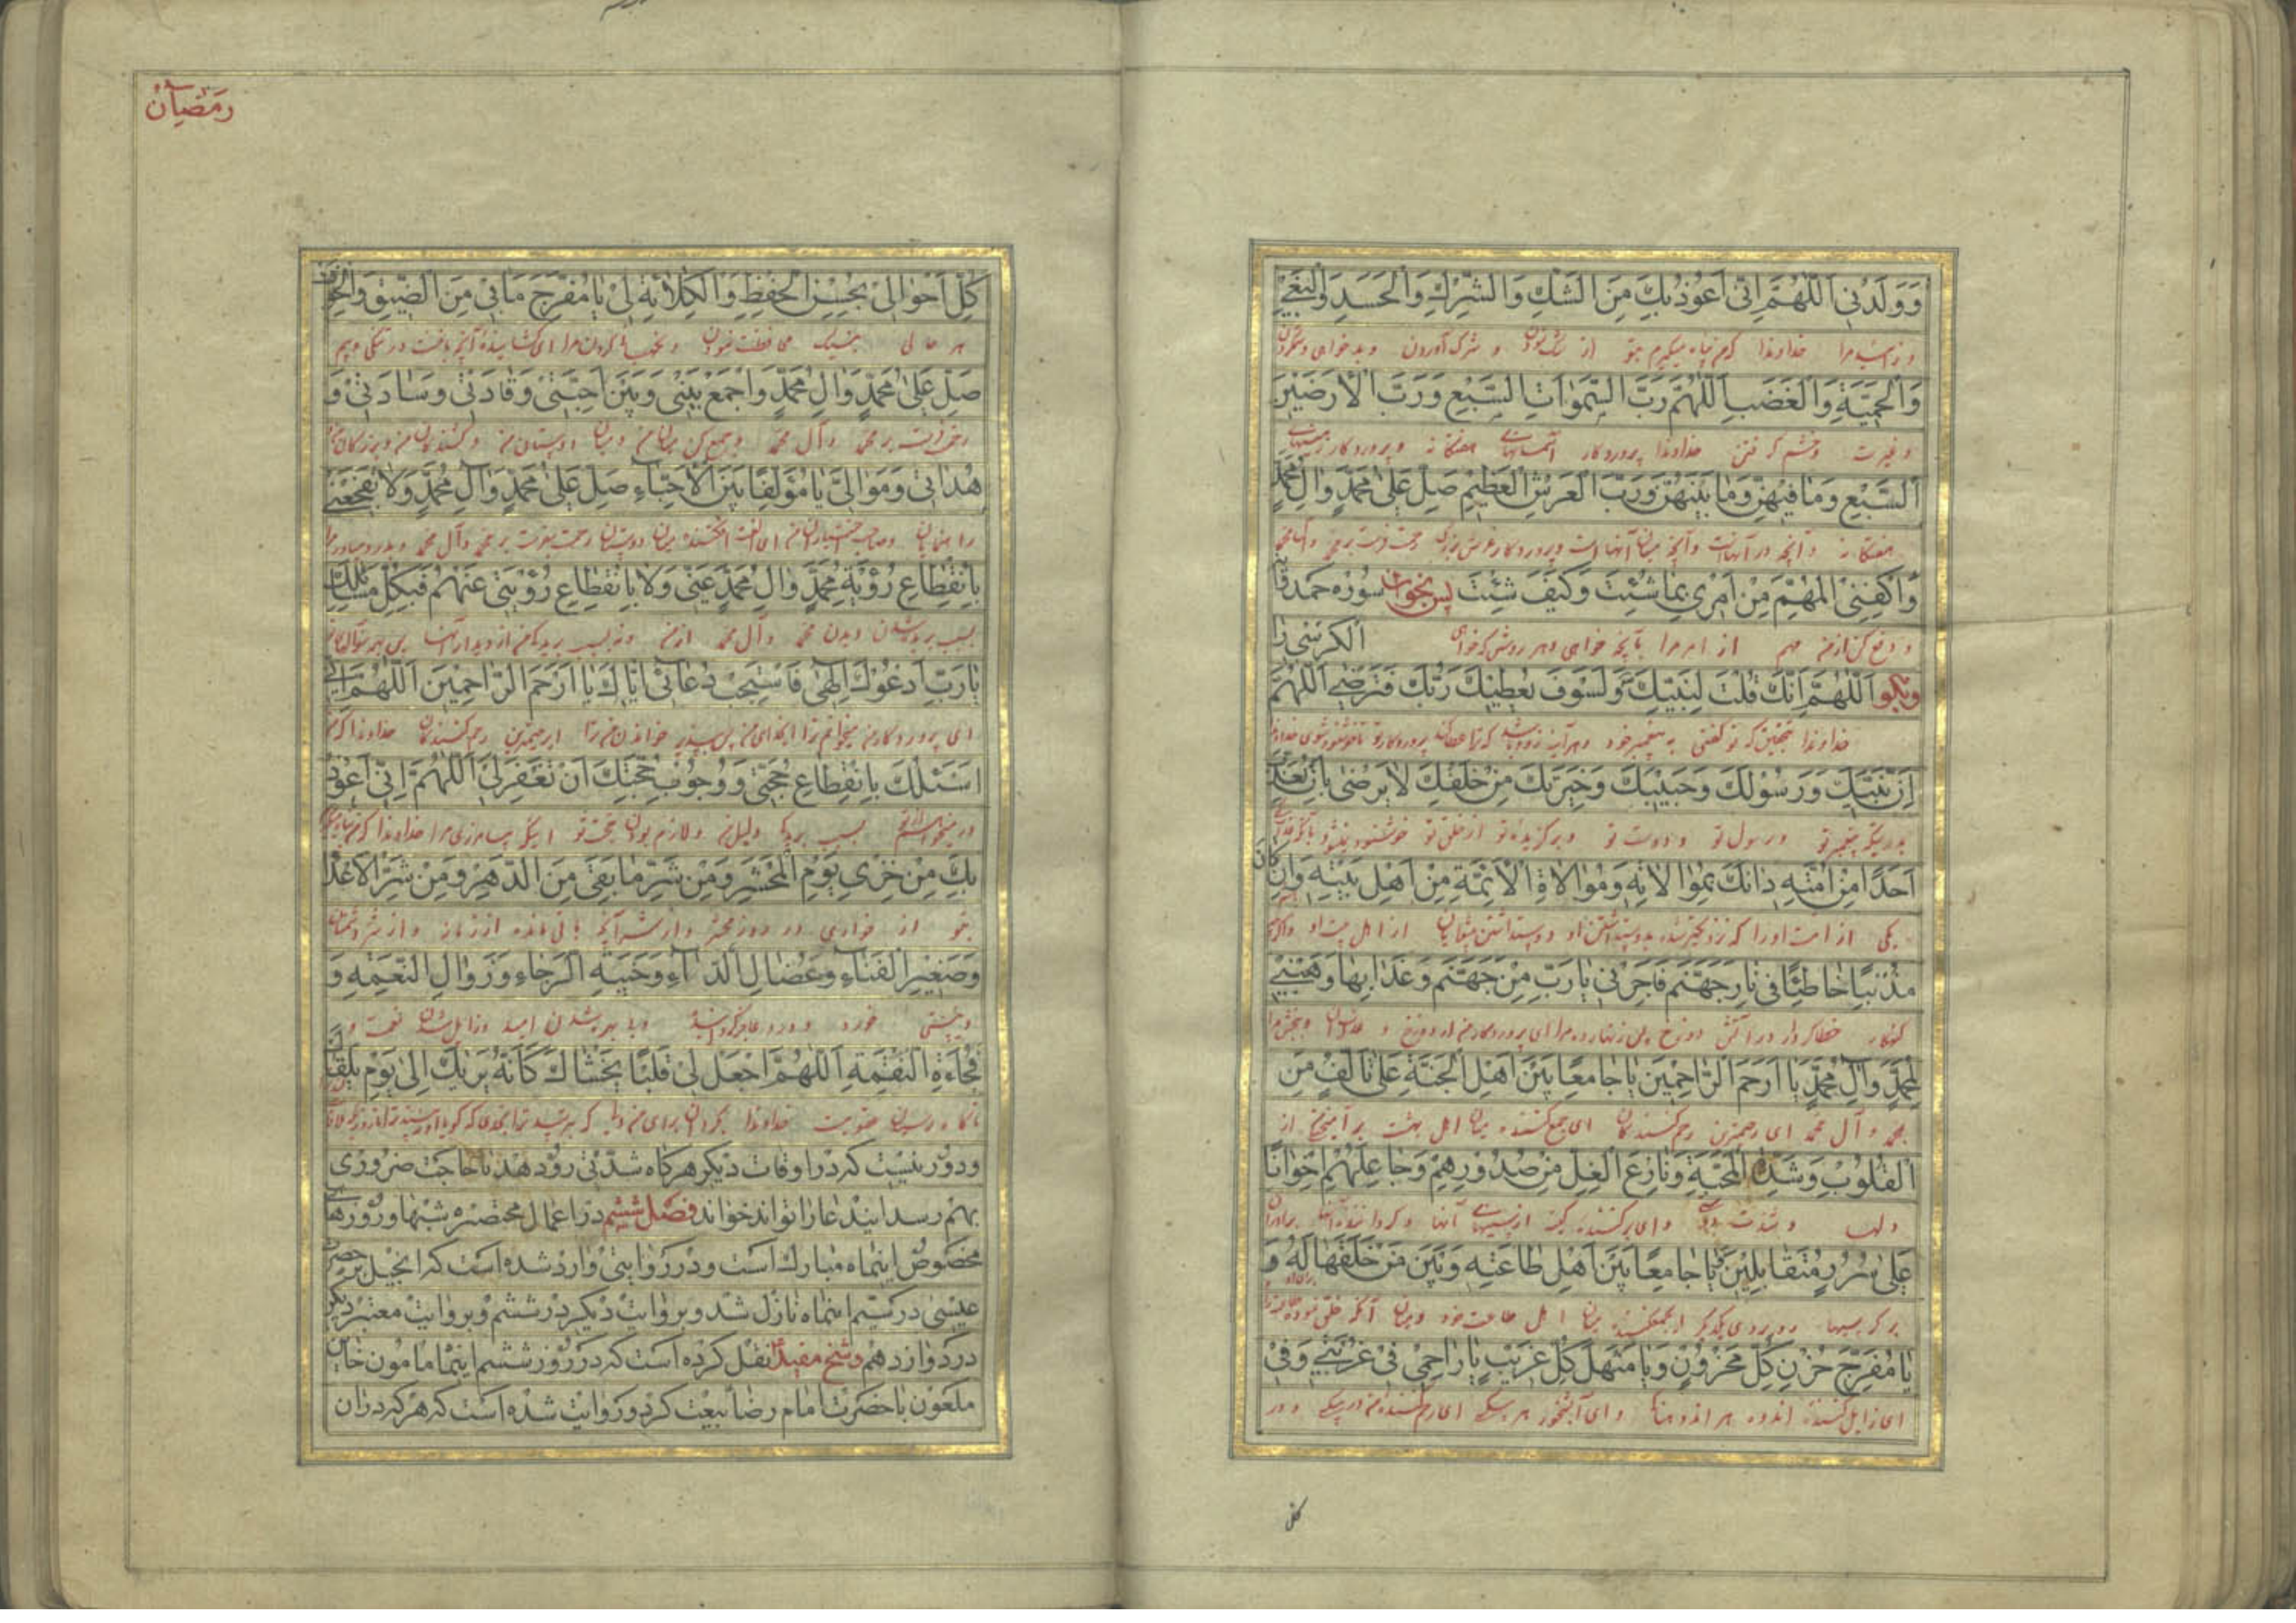 وَوَلَدَنِی اَللّٰهُمَّ اِنّی اَعُوذُ بِكَ مِنَ الشَّكِّ وَالشِّرْكِ وَالْحَسَدِ وَالْبَغْیِ
خداوندا كه من پناه میگیرم بتو از شك نمودن و شرك آوردن و بدخواهی
وَالْحَمِیَّةِ وَالْغَضَبِ اَللّٰهُمَّ رَبَّ السَّمٰوَاتِ السَّبْعِ وَرَبَّ الْاَرَضِینَ
و غیرت و خشم گرفتن خداوندا پروردگار آسمانهای هفتگانه و پروردگار زمینهای
السَّبْعِ وَمَا فِیهِنَّ وَمَا بَیْنَهُنَّ وَرَبَّ الْعَرْشِ الْعَظِیمِ صَلِّ عَلیٰ مُحَمَّدٍ وَاٰلِ مُحَمَّدٍ
هفتگانه و آنچه در آنهاست و آنچه میان آنهاست و پروردگار عرش بزرگ رحمت فرست بر محمد و آل محمد
وَاكْفِنِی الْمُهِمَّ مِنْ اَمْرِی بِمَا شِئْتَ وَكَیْفَ شِئْتَ پس بخوان سوره حمد و آیة
و دفع كن از من مهم از امر مرا بآنچه خواهی و هر روش كه خواهی الكرسی را
و بگو اَللّٰهُمَّ اِنَّكَ قُلْتَ لِنَبِیِّكَ وَلَسَوْفَ یُعْطِیكَ رَبُّكَ فَتَرْضیٰ اَللّٰهُمَّ
خداوندا بتحقیق كه تو گفتی به پیغمبر خود و هر آینه زود باشد كه ترا عطا كند پروردگار تو تا خوشنود شوی خداوندا
اِنَّ نَبِیَّكَ وَرَسُولَكَ وَحَبِیبَكَ وَخِیَرَتَكَ مِنْ خَلْقِكَ لَا یَرْضیٰ بِاَنْ تُعَذِّبَ
بدرستیكه پیغمبر تو و رسول تو و دوست تو و برگزیده تو از خلق تو خوشنود نیشود بآنكه
اَحَدًا مِنْ اُمَّتِهِ دَانَكَ بِمُوَالَاتِهِ وَمُوَالَاةِ الْاَئِمَّةِ مِنْ اَهْلِ بَیْتِهِ وَاِنْ كَانَ
یكی از امت او را از اهل بیت او و اگرچه
مُذْنِبًا خَاطِئًا فِی نَارِ جَهَنَّمَ فَاَجِرْنِی یَا رَبِّ مِنْ جَهَنَّمَ وَعَذَابِهَا وَهَبْنِی
گنهكار خطا كردار در آتش دوزخ پس زنهار ده مرا ای پروردگار من از دوزخ و عذاب آن و ببخش مرا
لِمُحَمَّدٍ وَاٰلِ مُحَمَّدٍ یَا اَرْحَمَ الرَّاحِمِینَ یَا جَامِعًا بَیْنَ اَهْلِ الْجَنَّةِ عَلیٰ تَاَلُّفٍ مِنَ
بمحمد و آل محمد ای رحیمترین رحم كنندگان ای جمع كننده میان اهل بهشت بر آمیختن از
الْقُلُوبِ وَشِدَّةِ الْمَحَبَّةِ وَنَازِعَ الْغِلِّ مِنْ صُدُورِهِمْ وَجَاعِلَهُمْ اِخْوَانًا
دلها و شدت دوستی و ای بركننده كینه از سینهای آنها و گرداننده آنها برادران
عَلیٰ سُرُرٍ مُتَقَابِلِینَ یَا جَامِعًا بَیْنَ اَهْلِ طَاعَتِهِ وَبَیْنَ مَنْ خَلَقَهَا لَهُ وَ
بر كرسیها رو بروی یكدیگر ای جمع كننده میان اهل طاعت خود و میان آنكه خلق نموده
یَا مُفَرِّجَ حُزْنِ كُلِّ مَحْزُونٍ وَیَا مَنْهَلَ كُلِّ غَرِیبٍ یَا رَاحِمِی فِی غُرْبَتِی وَفِی
ای زایل كننده اندوه هر اندوهناك و ای آبشخور هر بیكس ای رحم كننده من در بیكسی و در
رمضان
كُلِّ اَحْوَالِی بِحُسْنِ الْحِفْظِ وَالْكِلَاءَةِ لِی یَا مُفَرِّجَ مَا بِی مِنَ الضِّیقِ وَالْخَوْفِ
هر حالی بنیك محافظت نمودن و نگهبانی كردن مرا ای گشاینده آنچه با منست در تنگی و بیم
صَلِّ عَلیٰ مُحَمَّدٍ وَاٰلِ مُحَمَّدٍ وَاجْمَعْ بَیْنِی وَبَیْنَ اَحِبَّتِی وَقَادَتِی وَسَادَتِی وَ
رحمت فرست بر محمد و آل محمد و جمع كن میان من و میان دوستان من و كشندگان من و بزرگان من
هُدَاتِی وَمَوَالِیَّ یَا مُؤَلِّفًا بَیْنَ الْاَحِبَّاءِ صَلِّ عَلیٰ مُحَمَّدٍ وَاٰلِ مُحَمَّدٍ وَلَا تَفْجَعْنِی
راهنمایان و صاحب اختیاران من ای الفت افكننده میان دوستان رحمت بفرست بر محمد و آل محمد
بِانْقِطَاعِ رُؤْیَةِ مُحَمَّدٍ وَاٰلِ مُحَمَّدٍ عَنِّی وَلَا بِانْقِطَاعِ رُؤْیَتِی عَنْهُمْ فَبِكُلِّ مَسَائِلِكَ
بسبب بریده شدن دیدن محمد و آل محمد از من و نه بسبب بریدن من از دیدار آنها پس بهر سؤالهای
یَا رَبِّ اَدْعُوكَ اِلٰهِی فَاسْتَجِبْ دُعَائِی اِیَّاكَ یَا اَرْحَمَ الرَّاحِمِینَ اَللّٰهُمَّ اِنِّی
ای پروردگار من میخوانم ترا ایخدای من پس بپذیر خواندن من ترا ای رحیمترین رحم كنندگان خداوندا كه من
اَسْئَلُكَ بِانْقِطَاعِ حُجَّتِی وَوُجُوبِ حُجَّتِكَ اَنْ تَغْفِرَ لِی اَللّٰهُمَّ اِنِّی اَعُوذُ
بسبب بریدن دلیل من و لازم بودن حجت تو اینكه بیامرزی مرا خداوندا كه من پناه میگیرم
بِكَ مِنْ خِزْیِ یَوْمِ الْمَحْشَرِ وَمِنْ شَرِّ مَا بَقِیَ مِنَ الدَّهْرِ وَمِنْ شَرِّ الْاَعْدَاءِ
بتو از خواری در روز محشر و از شر آنچه باقی مانده از زمانه و از شر دشمنان
وَصَغِیرِ الْفَنَاءِ وَعُضَالِ الدَّاءِ وَخَیْبَةِ الرَّجَاءِ وَزَوَالِ النِّعْمَةِ وَ
و نیستی خورد و درد عاجز كننده و نا امید شدن امید و زایل شدن نعمت و
فُجَاءَةِ النِّقْمَةِ اَللّٰهُمَّ اجْعَلْ لِی قَلْبًا یَخْشَاكَ كَاَنَّهُ یَرَاكَ اِلیٰ یَوْمِ یَلْقَاكَ
ناگاه رسیدن عقوبت خداوندا بگردان برای من دلی كه بترسد ترا
و دور نیست كه در اوقات دیگر هرگاه شدّتی رو دهد یا حاجت ضروری
بهم رسد ایندعا را تواند خواند فصل ششم در اعمال مختصره شبها و روزهای
مخصوص اینماه مبارك است و در روایتی وارد شده است كه انجیل بر حضرت
عیسی در سیم اینماه نازل شد و بروایت دیگر در ششم و بروایت معتبر دیگر
در دوازدهم و شیخ مفید نقل كرده است كه در روز ششم اینماه مامون خاین
ملعون با حضرت امام رضا بیعت كرد و روایت شده است كه هر كه در ان